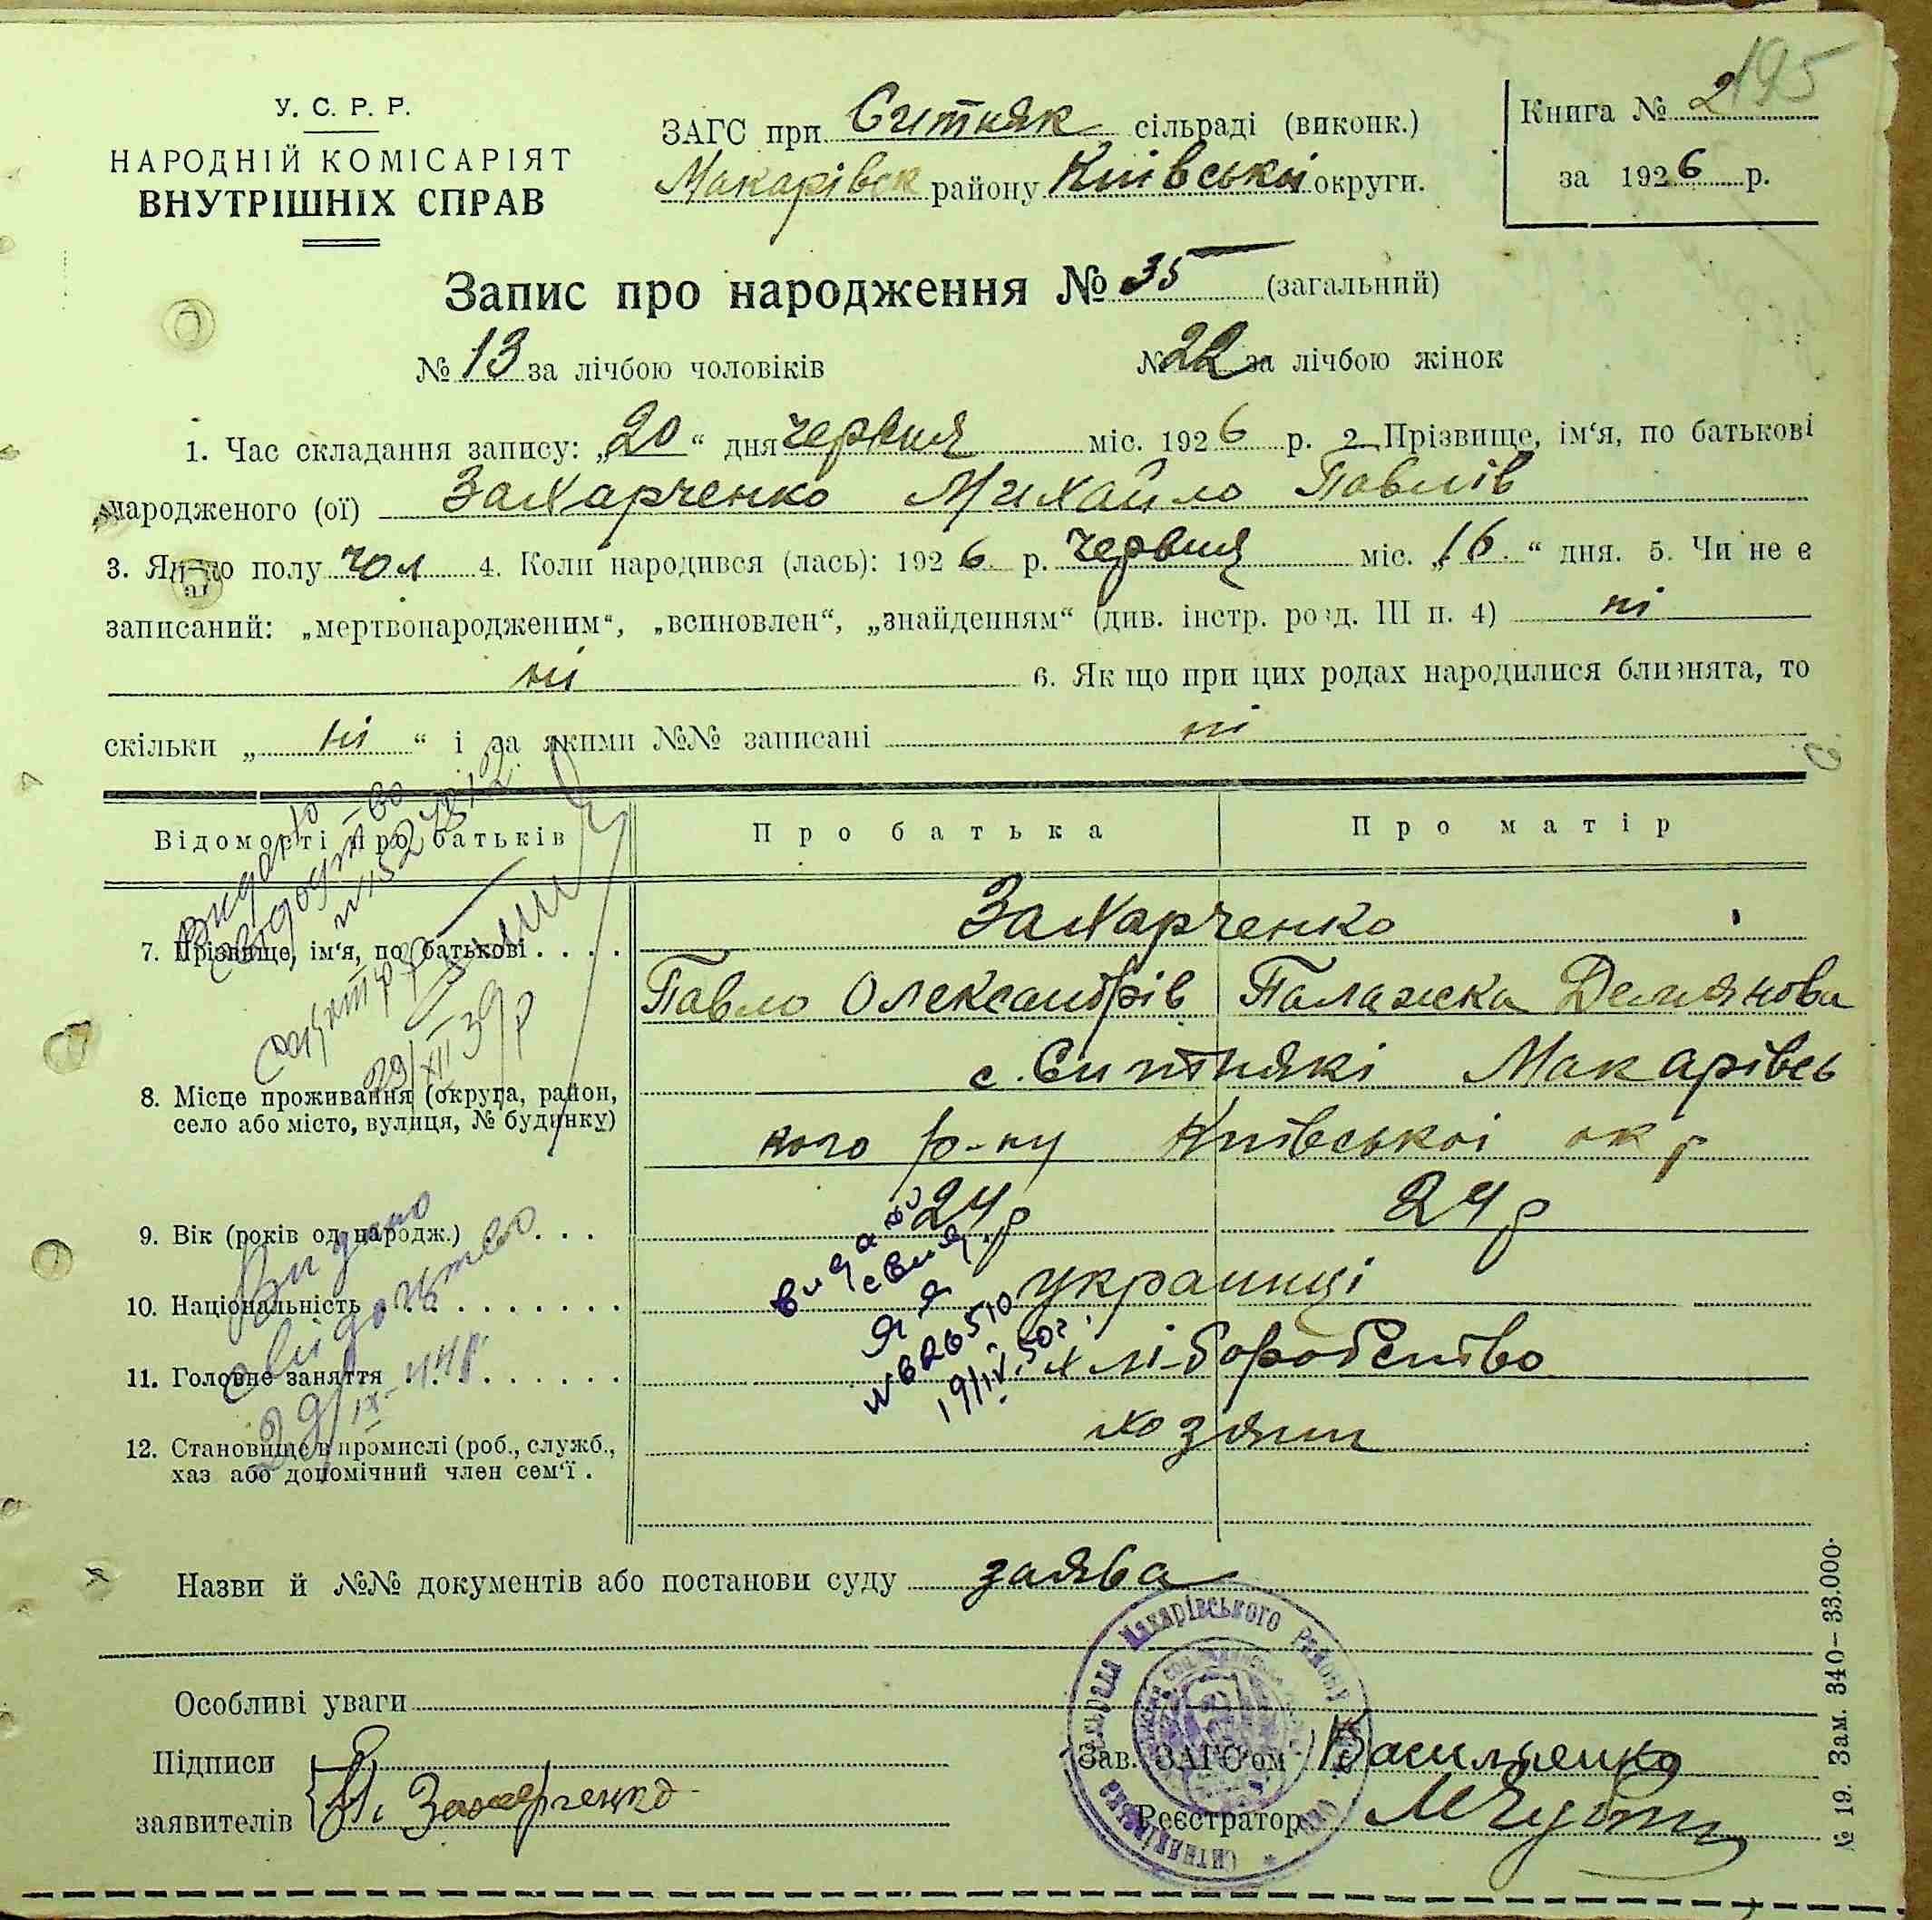 195
У. С. Р. Р.
НАРОДНІЙ КОМІСАРІЯТ
ВНУТРІШНІХ СПРАВ
ЗАГС при Ситняк сільраді (виконк.)
Макарівск району Київськоі округи.
Книга № 2
за 1926 р.
Запис про народження № 35 (загальний)
№ 13 за лічбою чоловіків № 22 за лічбою жінок
1. Час складання запису: „20“ дня червня міс. 1926 р. 2 Прізвище, ім‘я, по батькові
народженого (ої) Захарченко Михайло Павлів
3. Якого полу чол 4. Коли народився (лась): 1926 р. червня міс. „16“ дня. 5. Чи не є
записаний: „мертвонародженим“, „всиновлен“, „знайденням“ (див. інстр. розд. III п. 4) ні
ні 6. Якщо при цих родах народилися близнята, то
скільки „ ні “ і за якими №№ записані ні
Відомості про батьків Про батька Про матір
Видано
свідоцтво
Захарченко
7. Прізвище, ім‘я, по батькові . . . .
Павло Олександрів Палажка Демянова
29/XII 39р
8. Місце проживання (округа, район,
село або місто, вулиця, № будинку)
с. Ситнякі Макарівсь
кого р-ну Київськоі окр
9. Вік (років од народж.) . . . 24р 24р
Видано
свідоцтво
29/IX-44р.
видано
свид.
ЯЯ
№626510
19/IV.50г.
10. Національність . . . . . . . . . украинці
11. Головне заняття . . . . . . . . хлі-боробство
12. Становище в промислі (роб., служб.,
хаз або допомічний член сем‘ї . хозяин
Назви й №№ документів або постанови суду заява
Особливі уваги
Підписи
заявителів П. Захарченко
Зав. ЗАГС‘ом Василненко
Реєстратор
Ситняківська сільрада Макарівського Району
№ 19. Зам. 340—33.000.